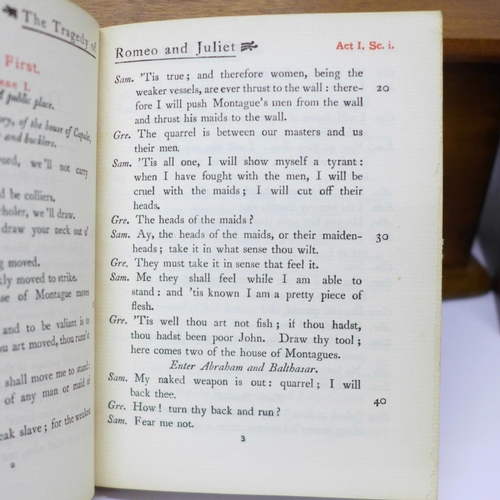 The Tragedy of
First.
ene I.
public place.
ory, of the house of Capulet,
and bucklers.
we'll not carry
d be colliers.
choler, we'll draw.
draw your neck out o'
ng moved.
kly moved to strike.
se of Montague moves
and to be valiant is to
ou art moved, thou runn'st
shall move me to stand:
of any man or maid of
eak slave; for the weakest
2
Romeo and Juliet
Act I, Sc. i.
Sam. 'Tis true; and therefore women, being the
weaker vessels, are ever thrust to the wall: there- 20
fore I will push Montague's men from the wall
and thrust his maids to the wall.
Gre. The quarrel is between our masters and us
their men.
Sam. 'Tis all one, I will show myself a tyrant:
when I have fought with the men, I will be
cruel with the maids; I will cut off their
heads.
Gre. The heads of the maids?
Sam. Ay, the heads of the maids, or their maiden- 30
heads; take it in what sense thou wilt.
Gre. They must take it in sense that feel it.
Sam. Me they shall feel while I am able to
stand: and 'tis known I am a pretty piece of
flesh.
Gre. 'Tis well thou art not fish; if thou hadst,
thou hadst been poor John. Draw thy tool;
here comes two of the house of Montagues.
Enter Abraham and Balthasar.
Sam. My naked weapon is out: quarrel; I will
back thee. 40
Gre. How! turn thy back and run?
Sam. Fear me not.
3